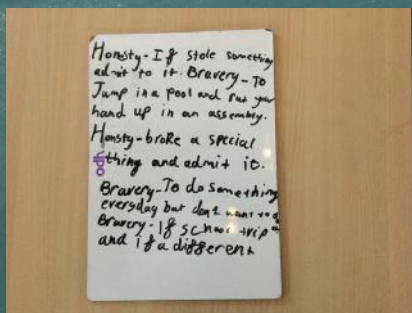 Honsty-If stole something
admit to it. Bravery-To
Jump in a pool and Put your
hand up in an assembly.
Honsty-broke a special
thing and admit it.
Bravery-To do something
everyday but don't want to
Bravery-If school trip
and if a different